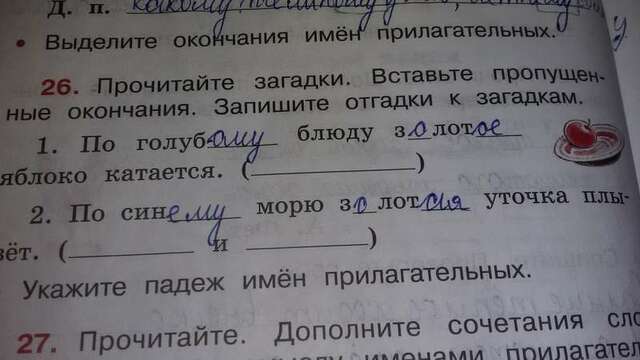 Д. п. какому?
• Выделите окончания имён прилагательных.
26. Прочитайте загадки. Вставьте пропущен-
ные окончания. Запишите отгадки к загадкам.
1. По голубому блюду золотое
яблоко катается. (____________)
2. По синему морю золотая уточка плы-
вёт. (________ и ________)
Укажите падеж имён прилагательных.
27. Прочитайте. Дополните сочетания сло
именами прилагател